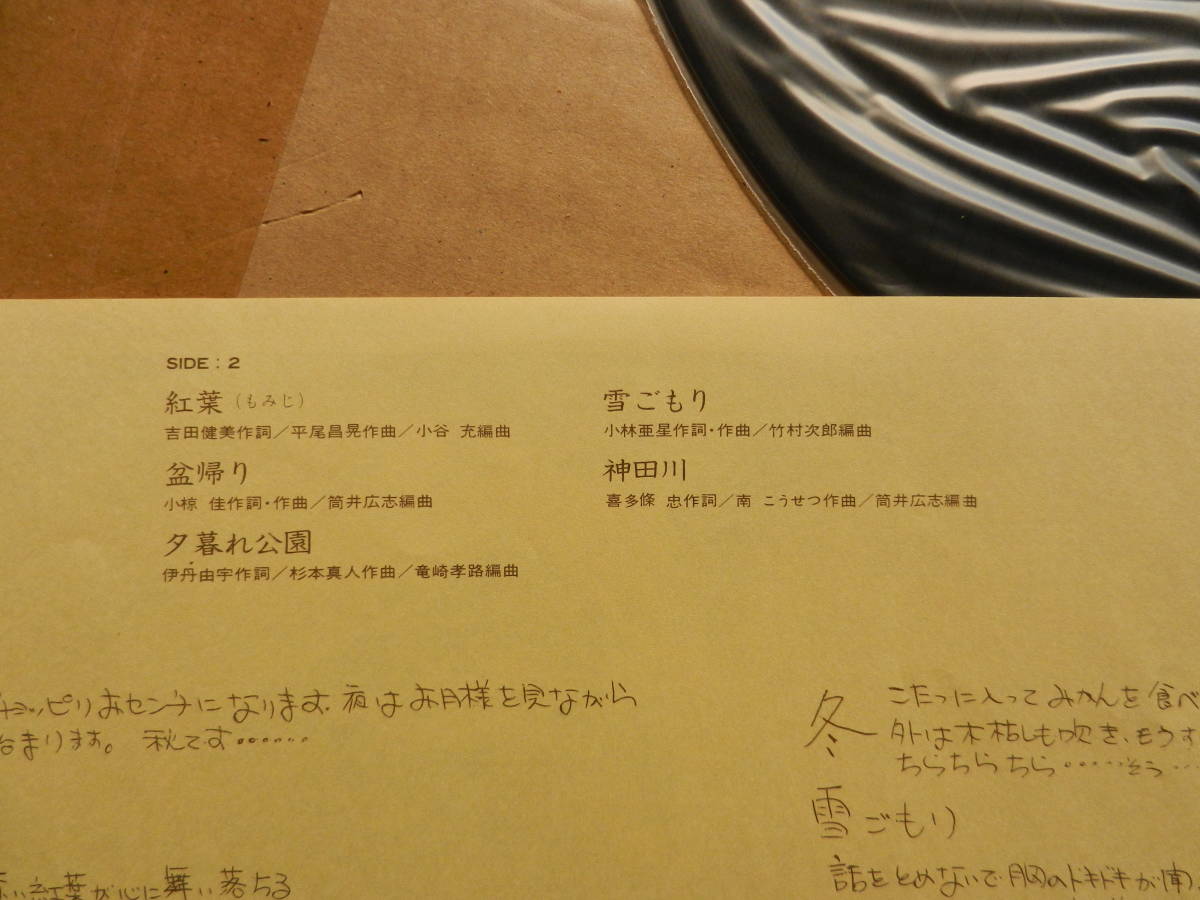 SIDE : 2
紅葉（もみじ）
吉田健美作詞／平尾昌晃作曲／小谷 充編曲
盆帰り
小椋 佳作詞・作曲／筒井広志編曲
夕暮れ公園
伊丹由宇作詞／杉本真人作曲／竜崎孝路編曲
雪ごもり
小林亜星作詞・作曲／竹村次郎編曲
神田川
喜多條 忠作詞／南 こうせつ作曲／筒井広志編曲
ョッピリおセンチになります。夜はお月様を見ながら
まります。 秋です……
紅葉が心に舞い落ちる
冬
こたつに入ってみかんを食べ
外は木枯しも吹き、もうす
ちらちらちら……そう…
雪ごもり
話をとめないで胸のドキドキが